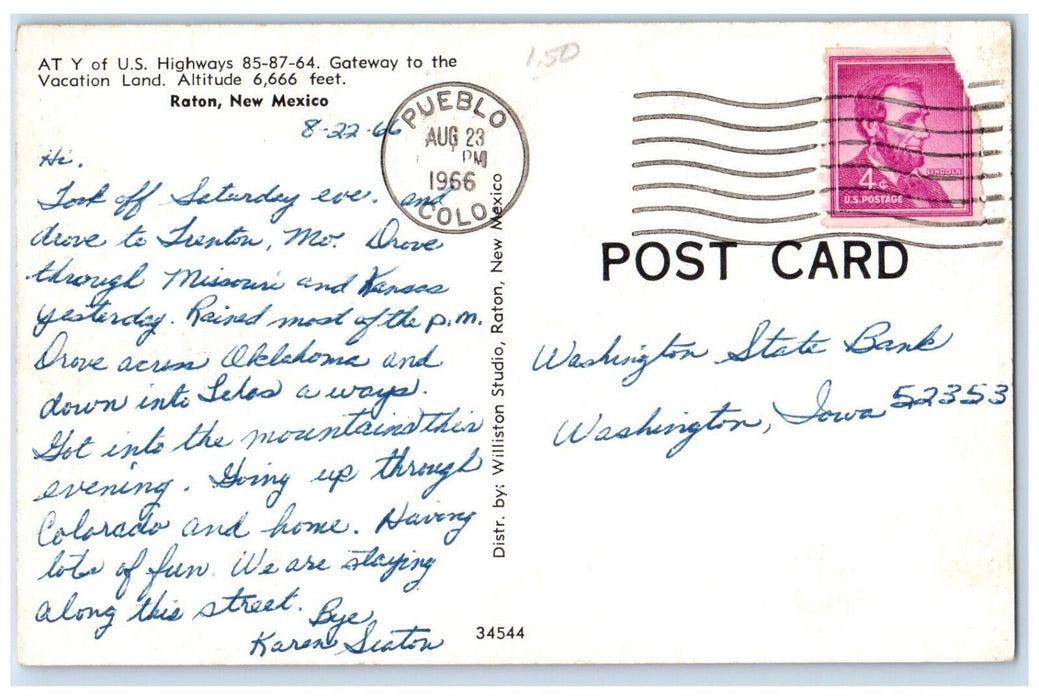 AT Y of U.S. Highways 85-87-64. Gateway to the
Vacation Land. Altitude 6,666 feet.
Raton, New Mexico
8-22-66
Hi.
Took off Saturday eve. and
drove to Trenton, Mo. Drove
through Missouri and Kansas
yesterday. Rained most of the p.m.
Drove across Oklahoma and
down into Texas a ways.
Got into the mountains this
evening. Going up through
Colorado and home. Having
lots of fun. We are staying
along this street.
Bye,
Karen Seaton
34544
Distr. by: Williston Studio, Raton, New Mexico
1.50
PUEBLO
AUG 23
PM
1966
COLO.
LINCOLN
4¢
U.S. POSTAGE
POST CARD
Washington State Bank
Washington, Iowa 52353